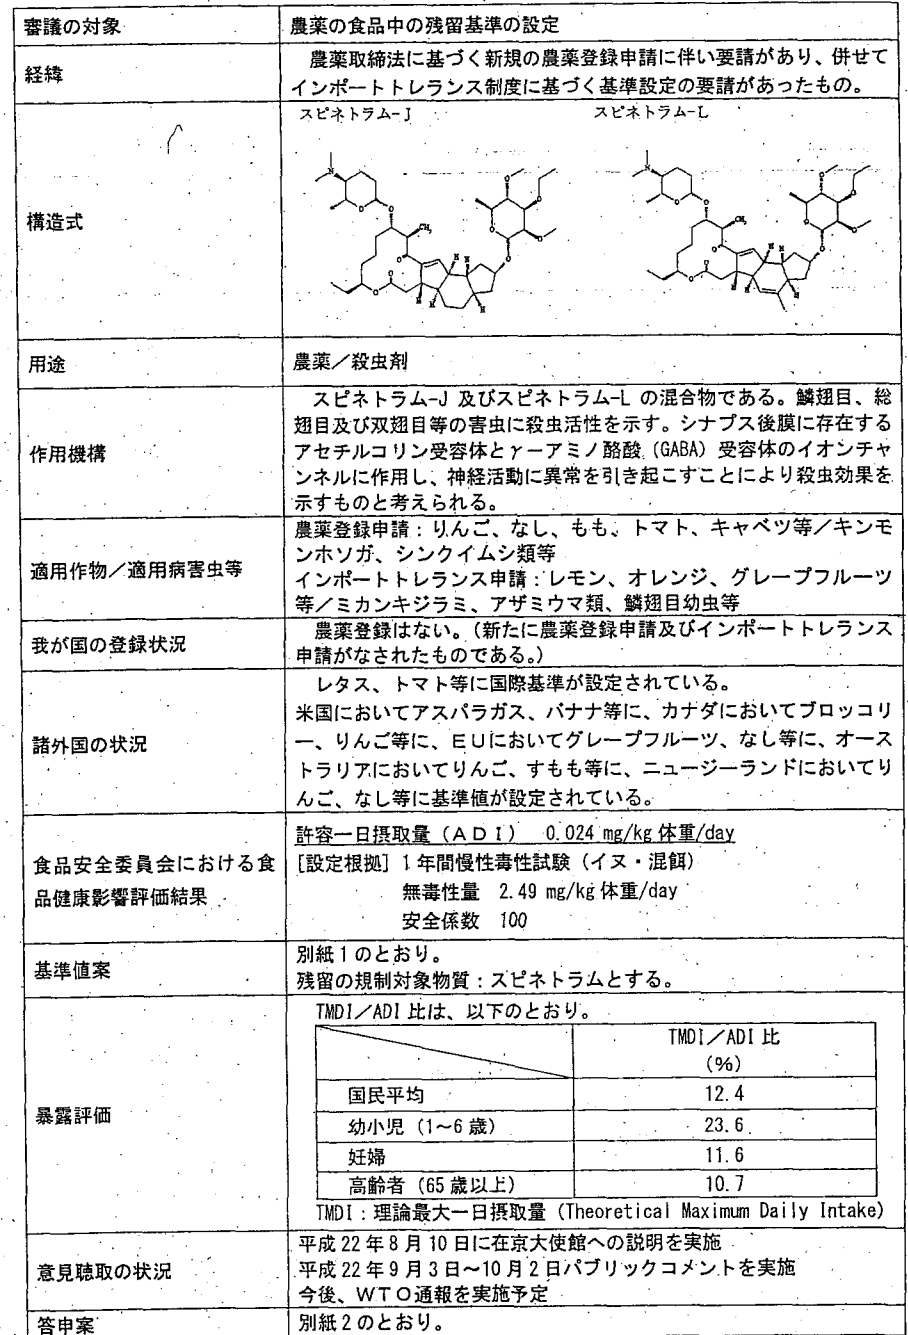 審議の対象
農薬の食品中の残留基準の設定
経緯
農薬取締法に基づく新規の農薬登録申請に伴い要請があり、併せて
インポートトレランス制度に基づく基準設定の要請があったもの。
構造式
スピネトラム-J
スピネトラム-L
用途
農薬／殺虫剤
作用機構
スピネトラム-J 及びスピネトラム-L の混合物である。鱗翅目、総
翅目及び双翅目等の害虫に殺虫活性を示す。シナプス後膜に存在する
アセチルコリン受容体とγーアミノ酪酸 (GABA) 受容体のイオンチャ
ンネルに作用し、神経活動に異常を引き起こすことにより殺虫効果を
示すものと考えられる。
適用作物／適用病害虫等
農薬登録申請：りんご、なし、もも、トマト、キャベツ等／キンモ
ンホソガ、シンクイムシ類等
インポートトレランス申請：レモン、オレンジ、グレープフルーツ
等／ミカンキジラミ、アザミウマ類、鱗翅目幼虫等
我が国の登録状況
農薬登録はない。（新たに農薬登録申請及びインポートトレランス
申請がなされたものである。）
諸外国の状況
レタス、トマト等に国際基準が設定されている。
米国においてアスパラガス、バナナ等に、カナダにおいてブロッコリ
ー、りんご等に、ＥＵにおいてグレープフルーツ、なし等に、オース
トラリアにおいてりんご、すもも等に、ニュージーランドにおいてり
んご、なし等に基準値が設定されている。
食品安全委員会における食
品健康影響評価結果
許容一日摂取量（ＡＤＩ） 0.024 mg/kg 体重/day
[設定根拠] 1 年間慢性毒性試験（イヌ・混餌）
無毒性量 2.49 mg/kg 体重/day
安全係数 100
基準値案
別紙１のとおり。
残留の規制対象物質：スピネトラムとする。
暴露評価
TMDI／ADI 比は、以下のとおり。
TMDI／ADI 比
(%)
国民平均 12.4
幼小児（1～6 歳） 23.6
妊婦 11.6
高齢者（65 歳以上） 10.7
TMDI：理論最大一日摂取量 (Theoretical Maximum Daily Intake)
意見聴取の状況
平成 22 年 8 月 10 日に在京大使館への説明を実施
平成 22 年 9 月 3 日～10 月 2 日パブリックコメントを実施
今後、ＷＴＯ通報を実施予定
答申案
別紙２のとおり。